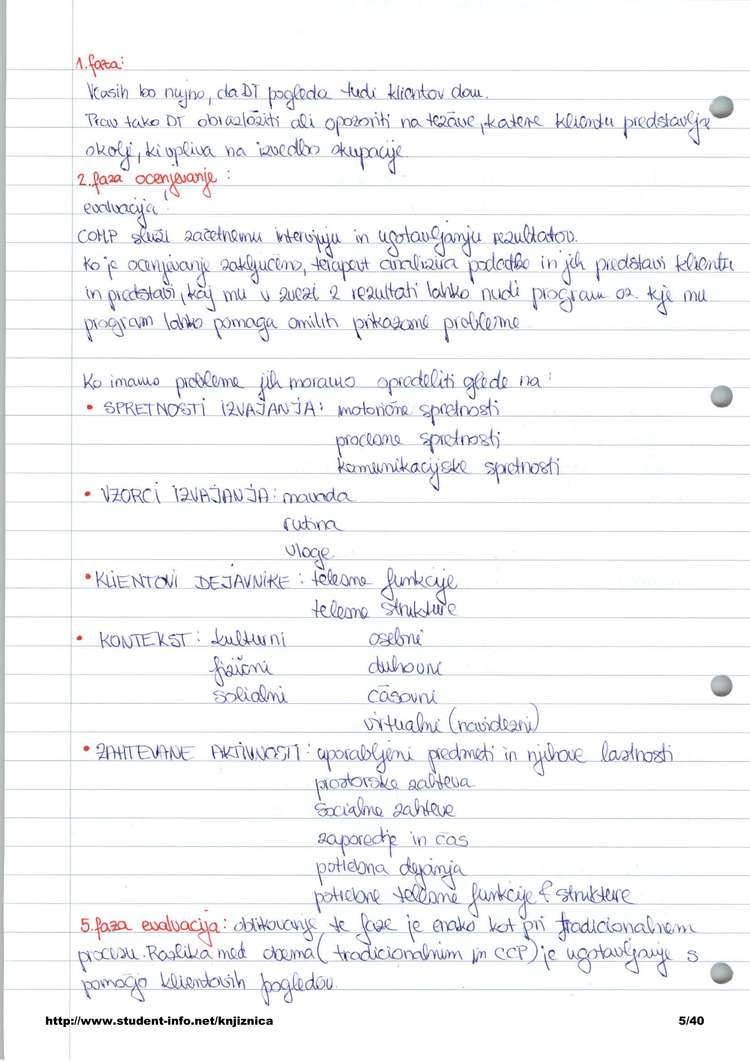 1. faza:
Včasih bo nujno, da DT pogleda tudi klientov dom.
Prav tako DT obrazložiti ali opozoriti na težave, katere klientu predstavlja
okolj, ki vpliva na izvedbo okupacije.
2. faza ocenjevanje:
evalvacija:
COMP služi začetnemu intervjuju in ugotavljanju rezultatov.
Ko je ocenjevanje zaključeno, terapevt analizira podatke in jih predstavi klientu
in predstavi, kaj mu v zvezi z rezultati lahko nudi program oz. kje mu
program lahko pomaga omiliti prikazane probleme.
Ko imamo probleme jih moramo opredeliti glede na:
• SPRETNOSTI IZVAJANJA: motorične spretnosti
procesne spretnosti
komunikacijske spretnosti
• VZORCI IZVAJANJA: navada
rutina
vloge
• KLIENTOVI DEJAVNIKE: telesne funkcije
telesne strukture
• KONTEKST: kulturni osebni
fizični duhovni
socialni časovni
virtualni (navidezni)
• ZAHTEVANE AKTIVNOSTI: uporabljeni predmeti in njihove lastnosti
prostorske zahteva
socialne zahteve
zaporedje in čas
potrebna dejanja
potrebne telesne funkcije & strukture
5. faza evalvacija: oblikovanje te faze je enako kot pri tradicionalnem
procesu. Razlika med obema (tradicionalnim in CCP) je ugotavljanje s
pomočjo klientovih pogledov.
http://www.student-info.net/knjiznica 5/40